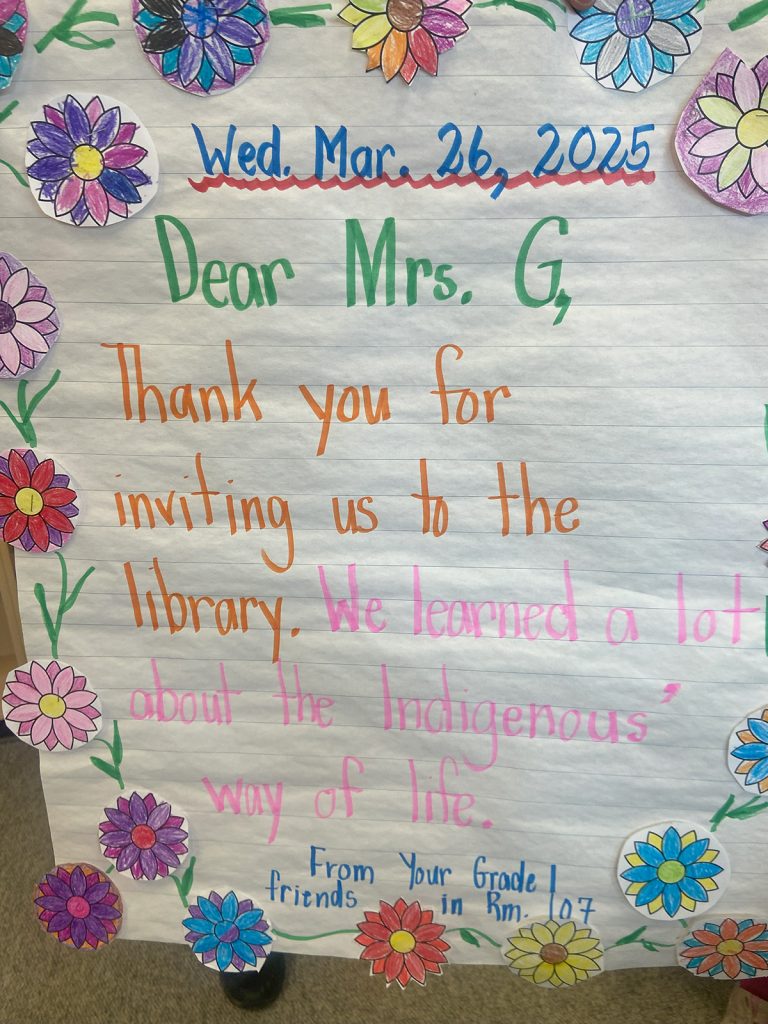 Wed. Mar. 26, 2025
Dear Mrs. G,
Thank you for
inviting us to the
library. We learned a lot
about the Indigenous'
way of life.
From Your Grade 1
friends in Rm. 107